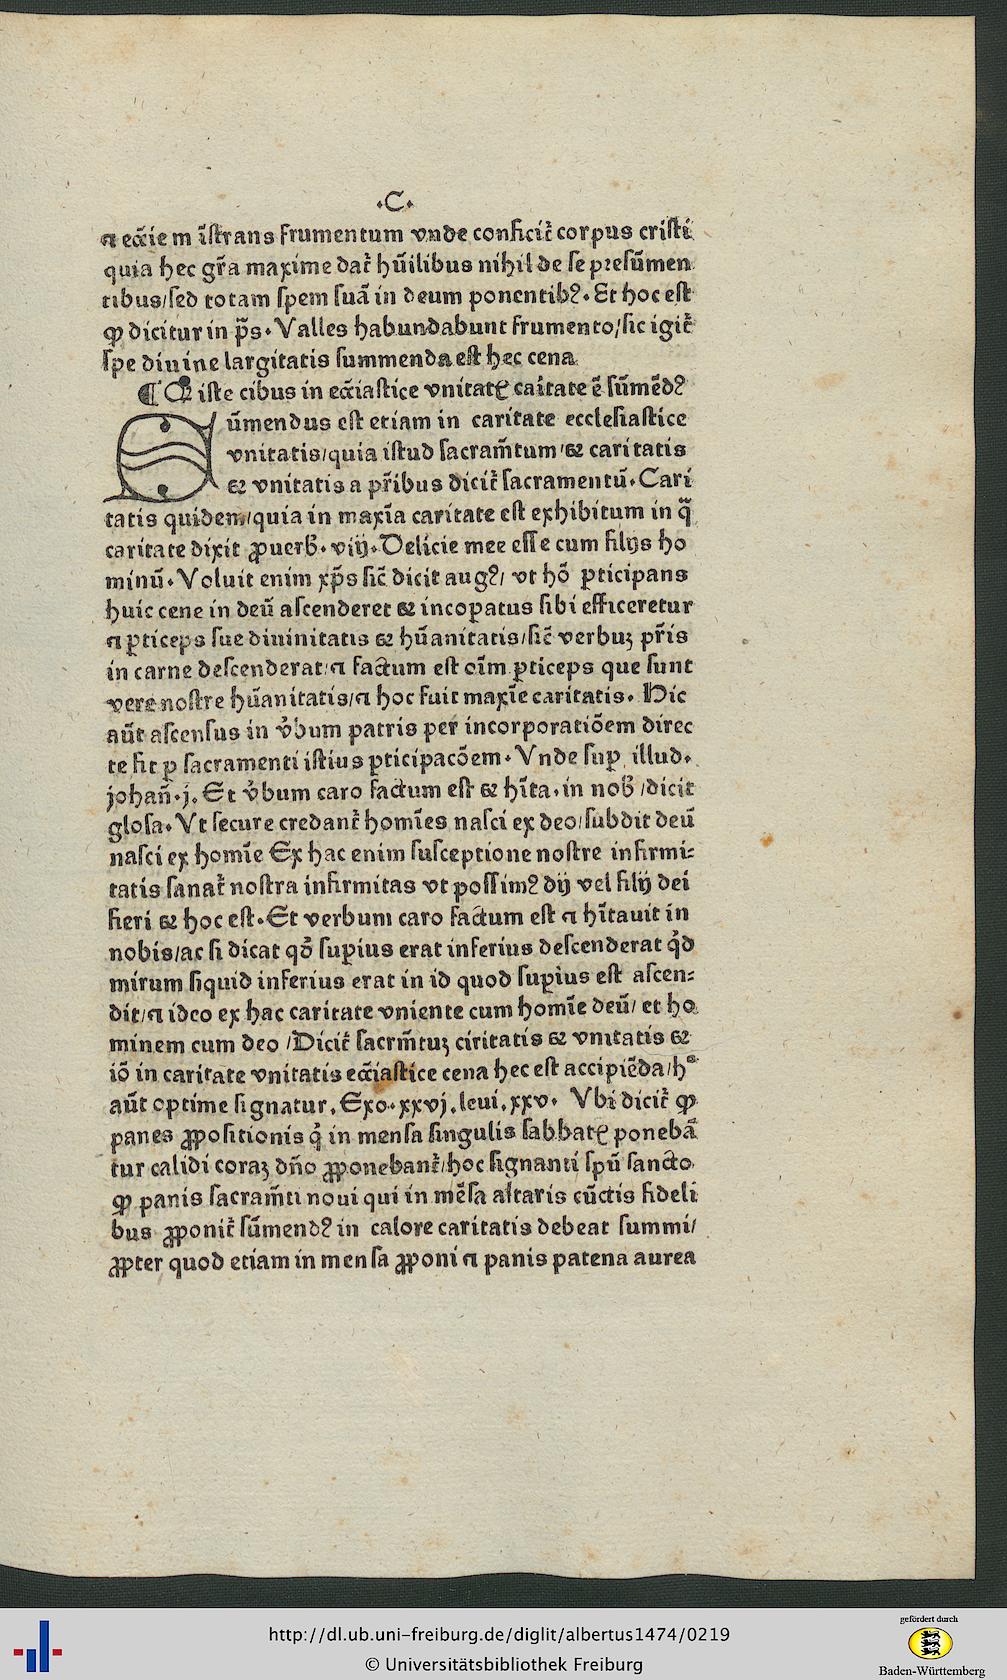 ·C·
⁊ ecc̄ie m īstrans frumentum vnde conficit᷑ corpus cristi
quia hec gr̄a maxime dat᷑ hūilibus nihil de se presūmen
tibus/sed totam spem suā in deum ponentibꝰ. Et hoc est
ꝙ dicitur in pّs. Valles habundabunt frumento/sic igit᷑
spe diuine largitatis summenda est hec cena
¶ Qꝫ iste cibus in ecc̄iastice vnitatꝭ caritate ē sūmēdꝰ
Sūmendus est etiam in caritate ecclesiastice
vnitatis/quia istud sacram̄tum/⁊ caritatis
⁊ vnitatis a pr̄ibus dicit᷑ sacramentū. Cari
tatis quidem/quia in maxīa caritate est exhibitum in q̄
caritate dixit ꝓuerb̄. viij. Delicie mee esse cum filijs ho
minū. Voluit enim xp̄s sic̄ dicit augꝰ/ vt hō ꝑticipans
huic cene in deū ascenderet ⁊ incorꝑatus sibi efficeretur
⁊ ꝑticeps sue diuinitatis ⁊ hūanitatis/sic̄ verbuꝫ pr̄is
in carne descenderat/⁊ factum est oīm ꝑticeps que sunt
vere nostre hūanitatis/⁊ hoc fuit maxīe caritatis. Hic
aūt ascensus in v̓bum patris per incorporatiōem direc
te fit ꝑ sacramenti istius ꝑticipacōem. Vnde suꝑ illud.
johan̄.j. Et v̓bum caro factum est ⁊ hīta.in nob̄ /dicit
glosa. Vt secure credant᷑ homīes nasci ex deo/subdit deū
nasci ex homīe Ex hac enim susceptione nostre infirmi⸗
tatis sanat᷑ nostra infirmitas vt possimꝰ dij vel filij dei
fieri ⁊ hoc est. Et verbum caro factum est ⁊ hītauit in
nobis/ac si dicat qō suꝑius erat inferius descenderat qͥd
mirum siquid inferius erat in id quod suꝑius est ascen⸗
dit/⁊ ideo ex hac caritate vniente cum homīe deū/ et ho
minem cum deo /Dicit᷑ sacrm̄tuꝫ ciritatis ⁊ vnitatis ⁊
iō in caritate vnitatis ecc̄iastice cena hec est accipiēda/hͦ
aūt optime signatur. Exo.xxvj.leui.xxv. Vbi dicit᷑ ꝙ
panes ꝓpositionis qͥ in mensa singulis sabbatꝭ ponebā
tur calidi coraꝫ dn̄o ꝓponebant᷑/hoc signanti spū sancto
ꝙ panis sacram̄ti noui qui in mēsa altaris cūctis fideli
bus ꝓponit᷑ sūmendꝰ in calore caritatis debeat summi/
ꝓpter quod etiam in mensa ꝓponi ⁊ panis patena aurea
http://dl.ub.uni-freiburg.de/diglit/albertus1474/0219
© Universitätsbibliothek Freiburg
gefördert durch
Baden-Württemberg